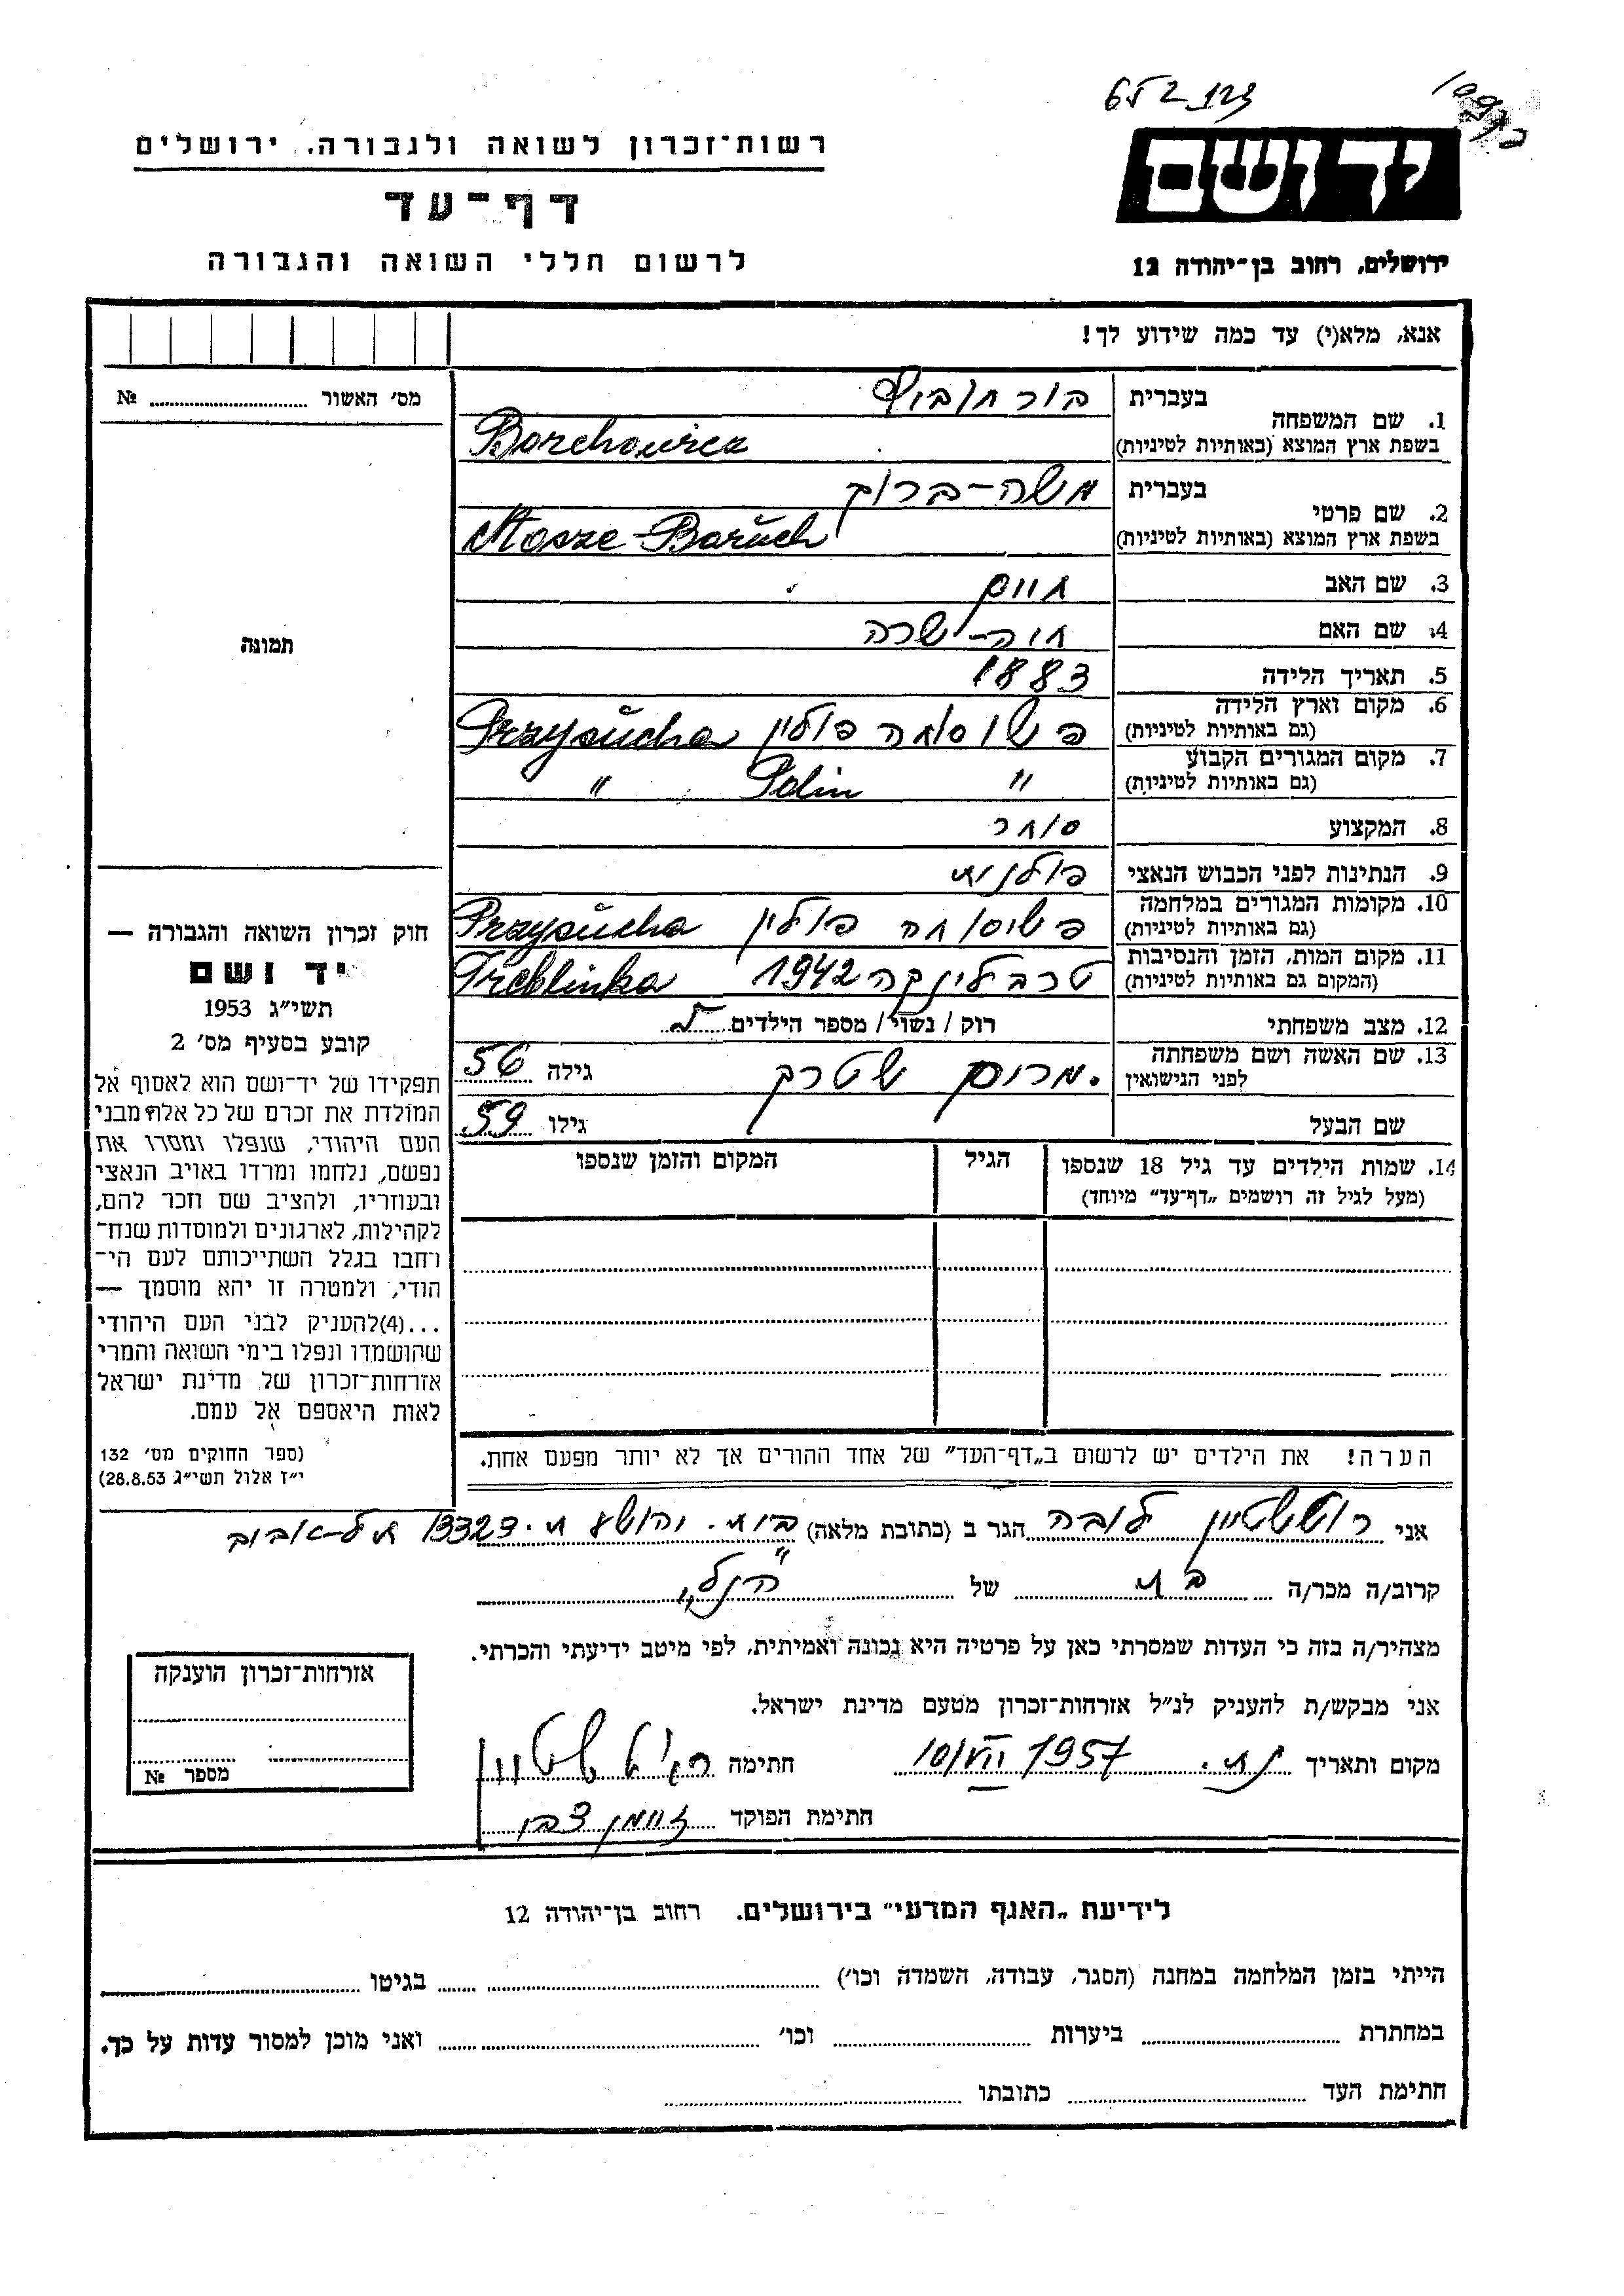 652 123
רשות־זכרון לשואה ולגבורה. ירושלים
דף־עד
לרשום חללי השואה והגבורה
יד ושם
ירושלים, רחוב בן־יהודה 12
אנא, מלא(י) עד כמה שידוע לך!
מס׳ האשור № ........
תמונה
חוק זכרון השואה והגבורה —
יד ושם
תשי״ג 1953
קובע בסעיף מס׳ 2
תפקידו של יד־ושם הוא לאסוף אל
המולדת את זכרם של כל אלה מבני
העם היהודי, שנפלו ומסרו את
נפשם, נלחמו ומרדו באויב הנאצי
ובעוזריו, ולהציב שם וזכר להם,
לקהילות, לארגונים ולמוסדות שנח־
רחבו בגלל השתייכותם לעם הי־
הודי, ולמטרה זו יהא מוסמך —
...(4)להעניק לבני העם היהודי
שהושמדו ונפלו בימי השואה והמרי
אזרחות־זכרון של מדינת ישראל
לאות היאספם אל עמם.
(ספר החוקים מס׳ 132
י״ז אלול תשי״ג 28.8.53)
1. שם המשפחה
בעברית בורחוביץ
בשפת ארץ המוצא (באותיות לטיניות) Borchowicz
2. שם פרטי
בעברית משה-ברוך
בשפת ארץ המוצא (באותיות לטיניות) Mosze-Baruch
3. שם האב חיים
4. שם האם חיה-שרה
5. תאריך הלידה 1883
6. מקום וארץ הלידה
(גם באותיות לטיניות) פשוסחה פולין Przysucha
7. מקום המגורים הקבוע
(גם באותיות לטיניות) " Polin "
8. המקצוע סוחר
9. הנתינות לפני הכבוש הנאצי פולנית
10. מקומות המגורים במלחמה
(גם באותיות לטיניות) פשיסוחה פולין Przysucha
11. מקום המות, הזמן והנסיבות
(המקום גם באותיות לטיניות) טרבלינקה 1942 Treblinka
12. מצב משפחתי רוק / נשוי / מספר הילדים
13. שם האשה ושם משפחתה
לפני הנישואין מרים שטרק גילה 56
שם הבעל גילו 59
14. שמות הילדים עד גיל 18 שנספו
(מעל לגיל זה רושמים „דף־עד״ מיוחד)
הגיל
המקום והזמן שנספו
הערה! את הילדים יש לרשום ב„דף־העד״ של אחד ההורים אך לא יותר מפעם אחת.
אני לובה הגר ב (כתובת מלאה) יהושע ת. 13323 תל-אביב
קרוב/ה מכר/ה בת של הנ"ל
מצהיר/ה בזה כי העדות שמסרתי כאן על פרטיה היא נכונה ואמיתית, לפי מיטב ידיעתי והכרתי.
אני מבקש/ת להעניק לנ״ל אזרחות־זכרון מטעם מדינת ישראל.
מקום ותאריך ת. 10/VII 1957 חתימה
חתימת הפוקד
אזרחות־זכרון הוענקה
מספר №
לידיעת „האגף המדעי״ בירושלים. רחוב בן־יהודה 12
הייתי בזמן המלחמה במחנה (הסגר, עבודה, השמדה וכו׳) בגיטו
במחתרת ביערות וכו׳ ואני מוכן למסור עדות על כך.
חתימת העד כתובתו